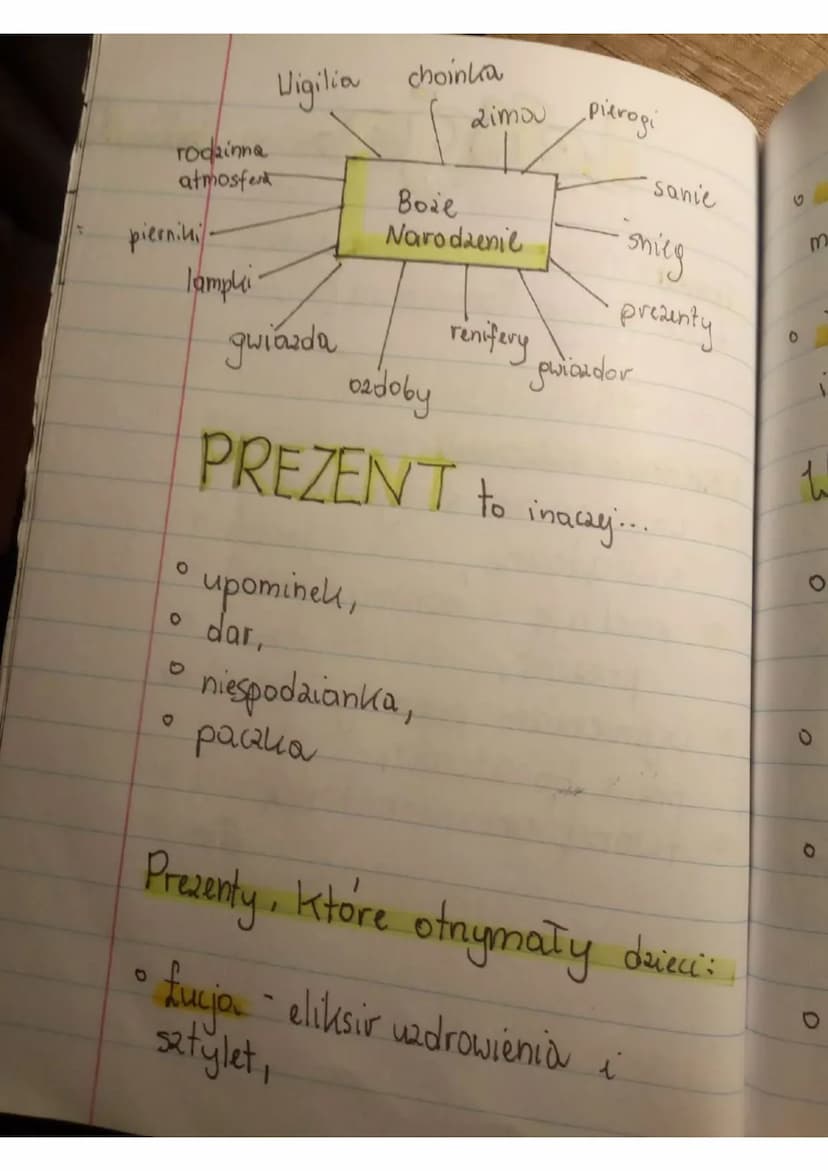 Wigilia
choinka
zima
pierogi
rodzinna
atmosfera
sanie
pierniki
śnieg
lampki
prezenty
gwiazda
renifery
gwiazdor
ozdoby
Boże
Narodzenie
PREZENT to inaczej...
° upominek,
° dar,
° niespodzianka,
° paczka
Prezenty, które otrzymały dzieci:
° Łucja - eliksir uzdrowienia i
sztylet,